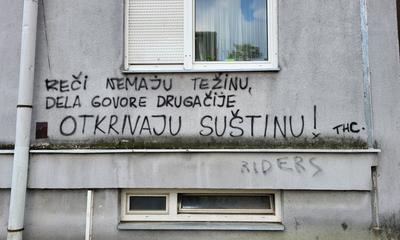 REČI NEMAJU TEŽINU,
DELA GOVORE DRUGAČIJE
OTKRIVAJU SUŠTINU! THC.
RIDERS